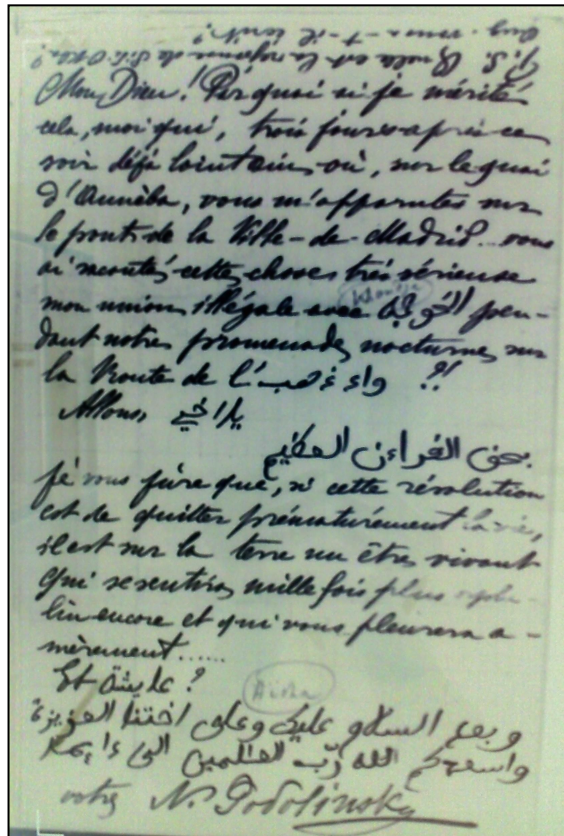 P. S. Quelle est la réponse de Sidi
vous a-t-il écrit ?
Mon Dieu ! Pourquoi ai-je mérité
cela, moi qui, trois jours après ce
soir déjà lointain où, sur le quai
d'Annèba, vous m'apparutes sur
le pont de la Ville-de-Madrid.. vous
ai raconté cette chose très sérieuse
mon union illégale avec الخوجة pen-
Khoudja
dant notre promenade nocturne sur
la Route de l' ?!
Allons,
بحق القرءان العظيم
je vous jure que, si cette résolution
est de quitter prématurément la vie,
il est sur la terre un être vivant
qui se sentira mille fois plus orphe-
lin encore et qui vous pleurera a-
mèrement......
Et عايشة ?
Aïcha
وبعد السلام عليك وعلى اختنا العزيزة
الله ربّ العالمين الى
votre N. Podolinsky